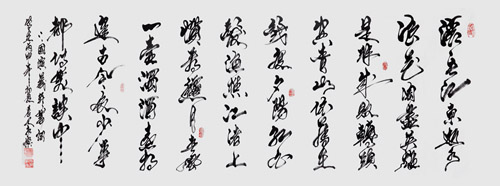 滚滚长江东逝水
浪花淘尽英雄
是非成败转头
空青山依旧在
几度夕阳红白
发渔樵江渚上
惯看秋月春风
一壶浊酒喜相
逢古今多少事
都付笑谈中
三国演义开篇词
丙申年